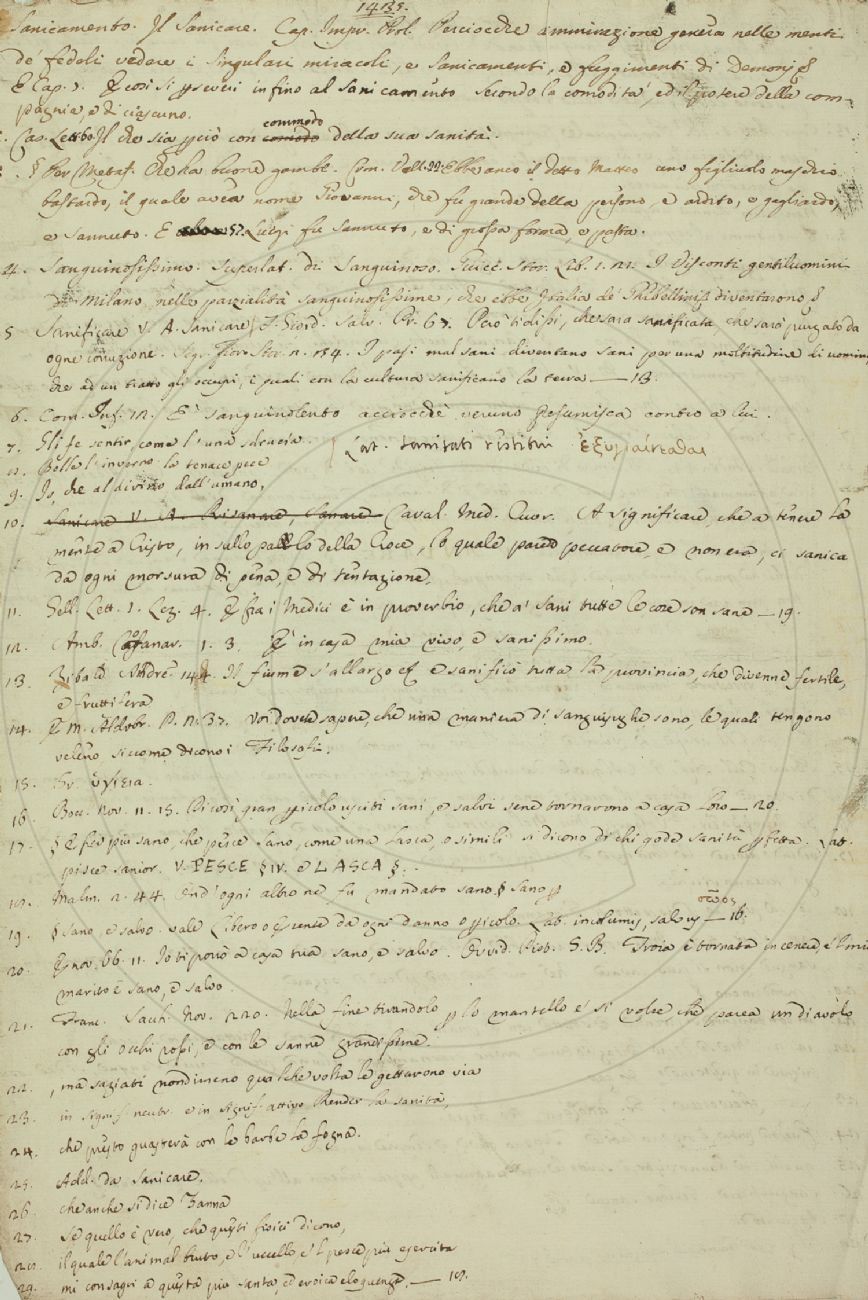 1435.
Sanicamento. Il Sanicare. Cap. Impr. Prol. Perciocchè amminazione genera nelle menti
de' fedeli vedere i singulari miracoli, e sanicamenti, e fuggimenti di Demonj §
E Cap. 7. E così si § infino al sanicamento secondo la comodità, ed il potere della com-
pagnia, e di ciascuno.
Cap. Il che sia con comodo commodo della sua sanità.
§ Per Metaf. Che ha buone gambe. Cron. Vell. 22. Ebbe anco il detto Matteo uno figliuolo maschio
bastardo, il quale avea nome Giovanni, che fu grande della persona, e ardito, e gagliardo,
e sannuto. E 57. Luigi fu sannuto, e di grossa forma, e pasta.
4. Sanguinosissimo. Superlat. di Sanguinoso. Guicc. Stor. Lib. 1. I Visconti gentiluomini
di Milano nelle parzialità sanguinosissime, che ebbe Italia de' Ghibellini diventarono §
5 Sanificare V. A. Sanicare F. Giord. Salv. Pr. 67. Però ti dissi, che sara sanificata che sarà purgato da
ogne coruzione. Segr. Fior. Stor. n. 154. I paesi mal sani diventano sani per una moltitudine di uomini
che ad un tratto gli occupi, i quali con la cultura sanificano la terra — 13.
6. Com. Inf. 12. E' sanguinolento acciocchè veruno presumisca contro a lui.
7. Gli fe sentir, come l'una sdrucia. Lat. sanitati restitui ἐξυγιάζεσθαι
8. Bolle l'inverno la tenace pece
9. Io, che al divino dall'umano,
10. Sanicare V. A. Risanare, Sanare Caval. Med. Cuor. A significare, che a tenere la
mente a Cristo, in sullo palo della Croce, lo quale pareo peccatore, e non era, ci sanica
da ogni morsura di pena, e di tentazione.
11. Gell. Lett. 1. Lez. 4. E fra i Medici è in proverbio, che a' sani tutte le cose son sane — 19.
12. Amb. Cofanar. 1. 3. E' in casa mia vivo, e sanissimo.
13. Zibald. Andr. 144. Il fiume s'allargo e sanificò tutta la provincia, che divenne fertile,
e fruttifera
14. E M. Aldobr. P. N. 37. Voi dovete sapere, che una maniera di sanguisughe sono, le quali tengono
veleno siccome dicono i Filosofi.
15. Gr. ὑγίεια.
16. Bocc. Nov. 11. 15. Di così gran pericolo usciti sani, e salvi sene tornarono a casa loro — 20.
17. § E più sano, che pesce Sano, come una Lasca, o simili si dicono di chi gode sanità perfetta. Latt.
pisce sanior. V. PESCE § IV. e LASCA §.
18. Malm. 2. 44. Ond'ogni altro ne fu mandato sano. § Sano
19. § Sano, e salvo. vale Libero o Esente da ogni danno o pericolo. Lat. incolumis, salvus σῶος — 16.
20. E nov. 66. 11. Io ti porrò a casa tua sano, e salvo. Ovvid. Pist. S. B. Troia è tornata in cenere, e 'l mio
marito è sano, e salvo.
21. Franc. Sacch. Nov. 220. Nella fine tirandolo per lo mantello e' si volse, che parea un diavolo
con gli occhi rossi, e con le sanne grandissime.
22. , ma sagiati nondimeno qualche volta le gettarono via
23. in signif. neutr. e in signif. attivo Render la sanità,
24. che presto guasterà con le barbe la fogna.
25. Add. da Sanicare.
26. che anche si dice Zanna
27. Se quello è vero, che questi fisici dicono,
28. il quale l'animal bruto, e l'uccello e 'l pesce più esercita
29. mi consagri a questa più santa, ed eroica eloquenza. — 18.